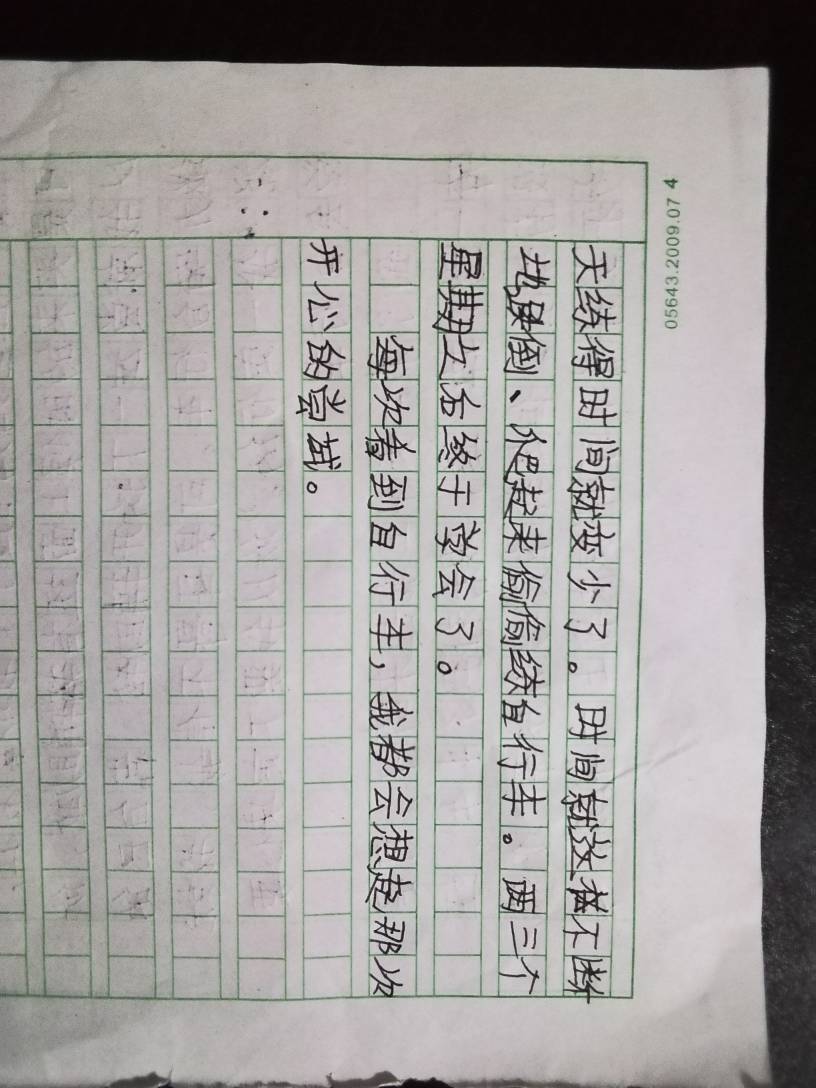 05643.2009.07 4
天练得时间就变少了。时间就这样不断
地摔倒、爬起来偷偷练自行车。两三个
星期之后终于学会了。
每次看到自行车，我都会想起那次
开心的尝试。